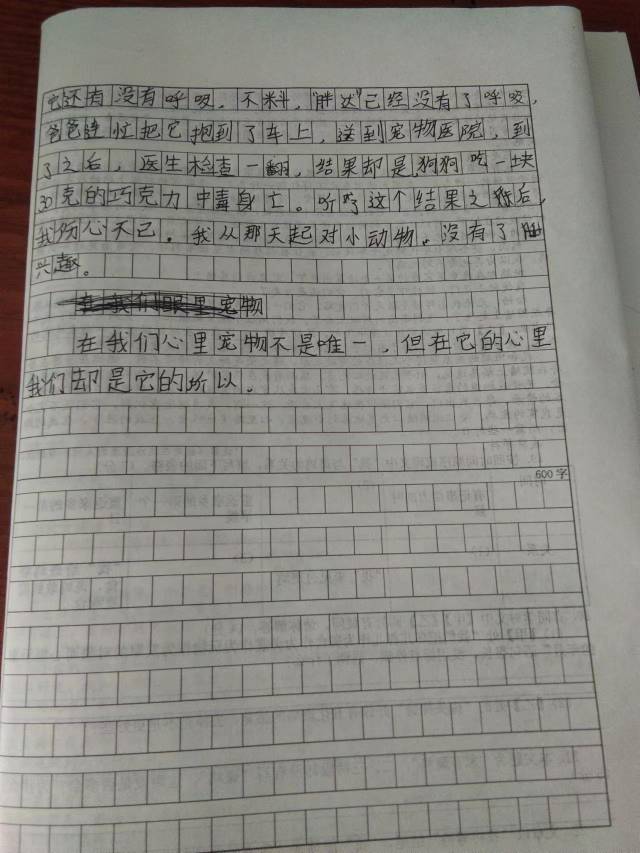 它还有没有呼吸，不料，"胖达"已经没有了呼吸，
爸爸连忙把它抱到了车上，送到宠物医院，到
了之后，医生检查一翻，结果却是狗狗吃一块
30克的巧克力中毒身亡。听了这个结果之后，
我伤心不已。我从那天起对小动物。没有了
兴趣。
在我们眼里宠物
在我们心里宠物不是唯一，但在它的心里
我们却是它的所以。
600字